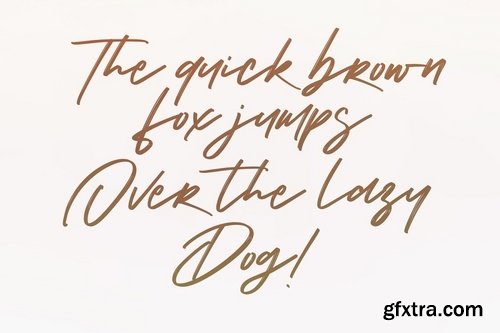 The quick brown
fox jumps
Over the lazy
Dog!
gfxtra.com